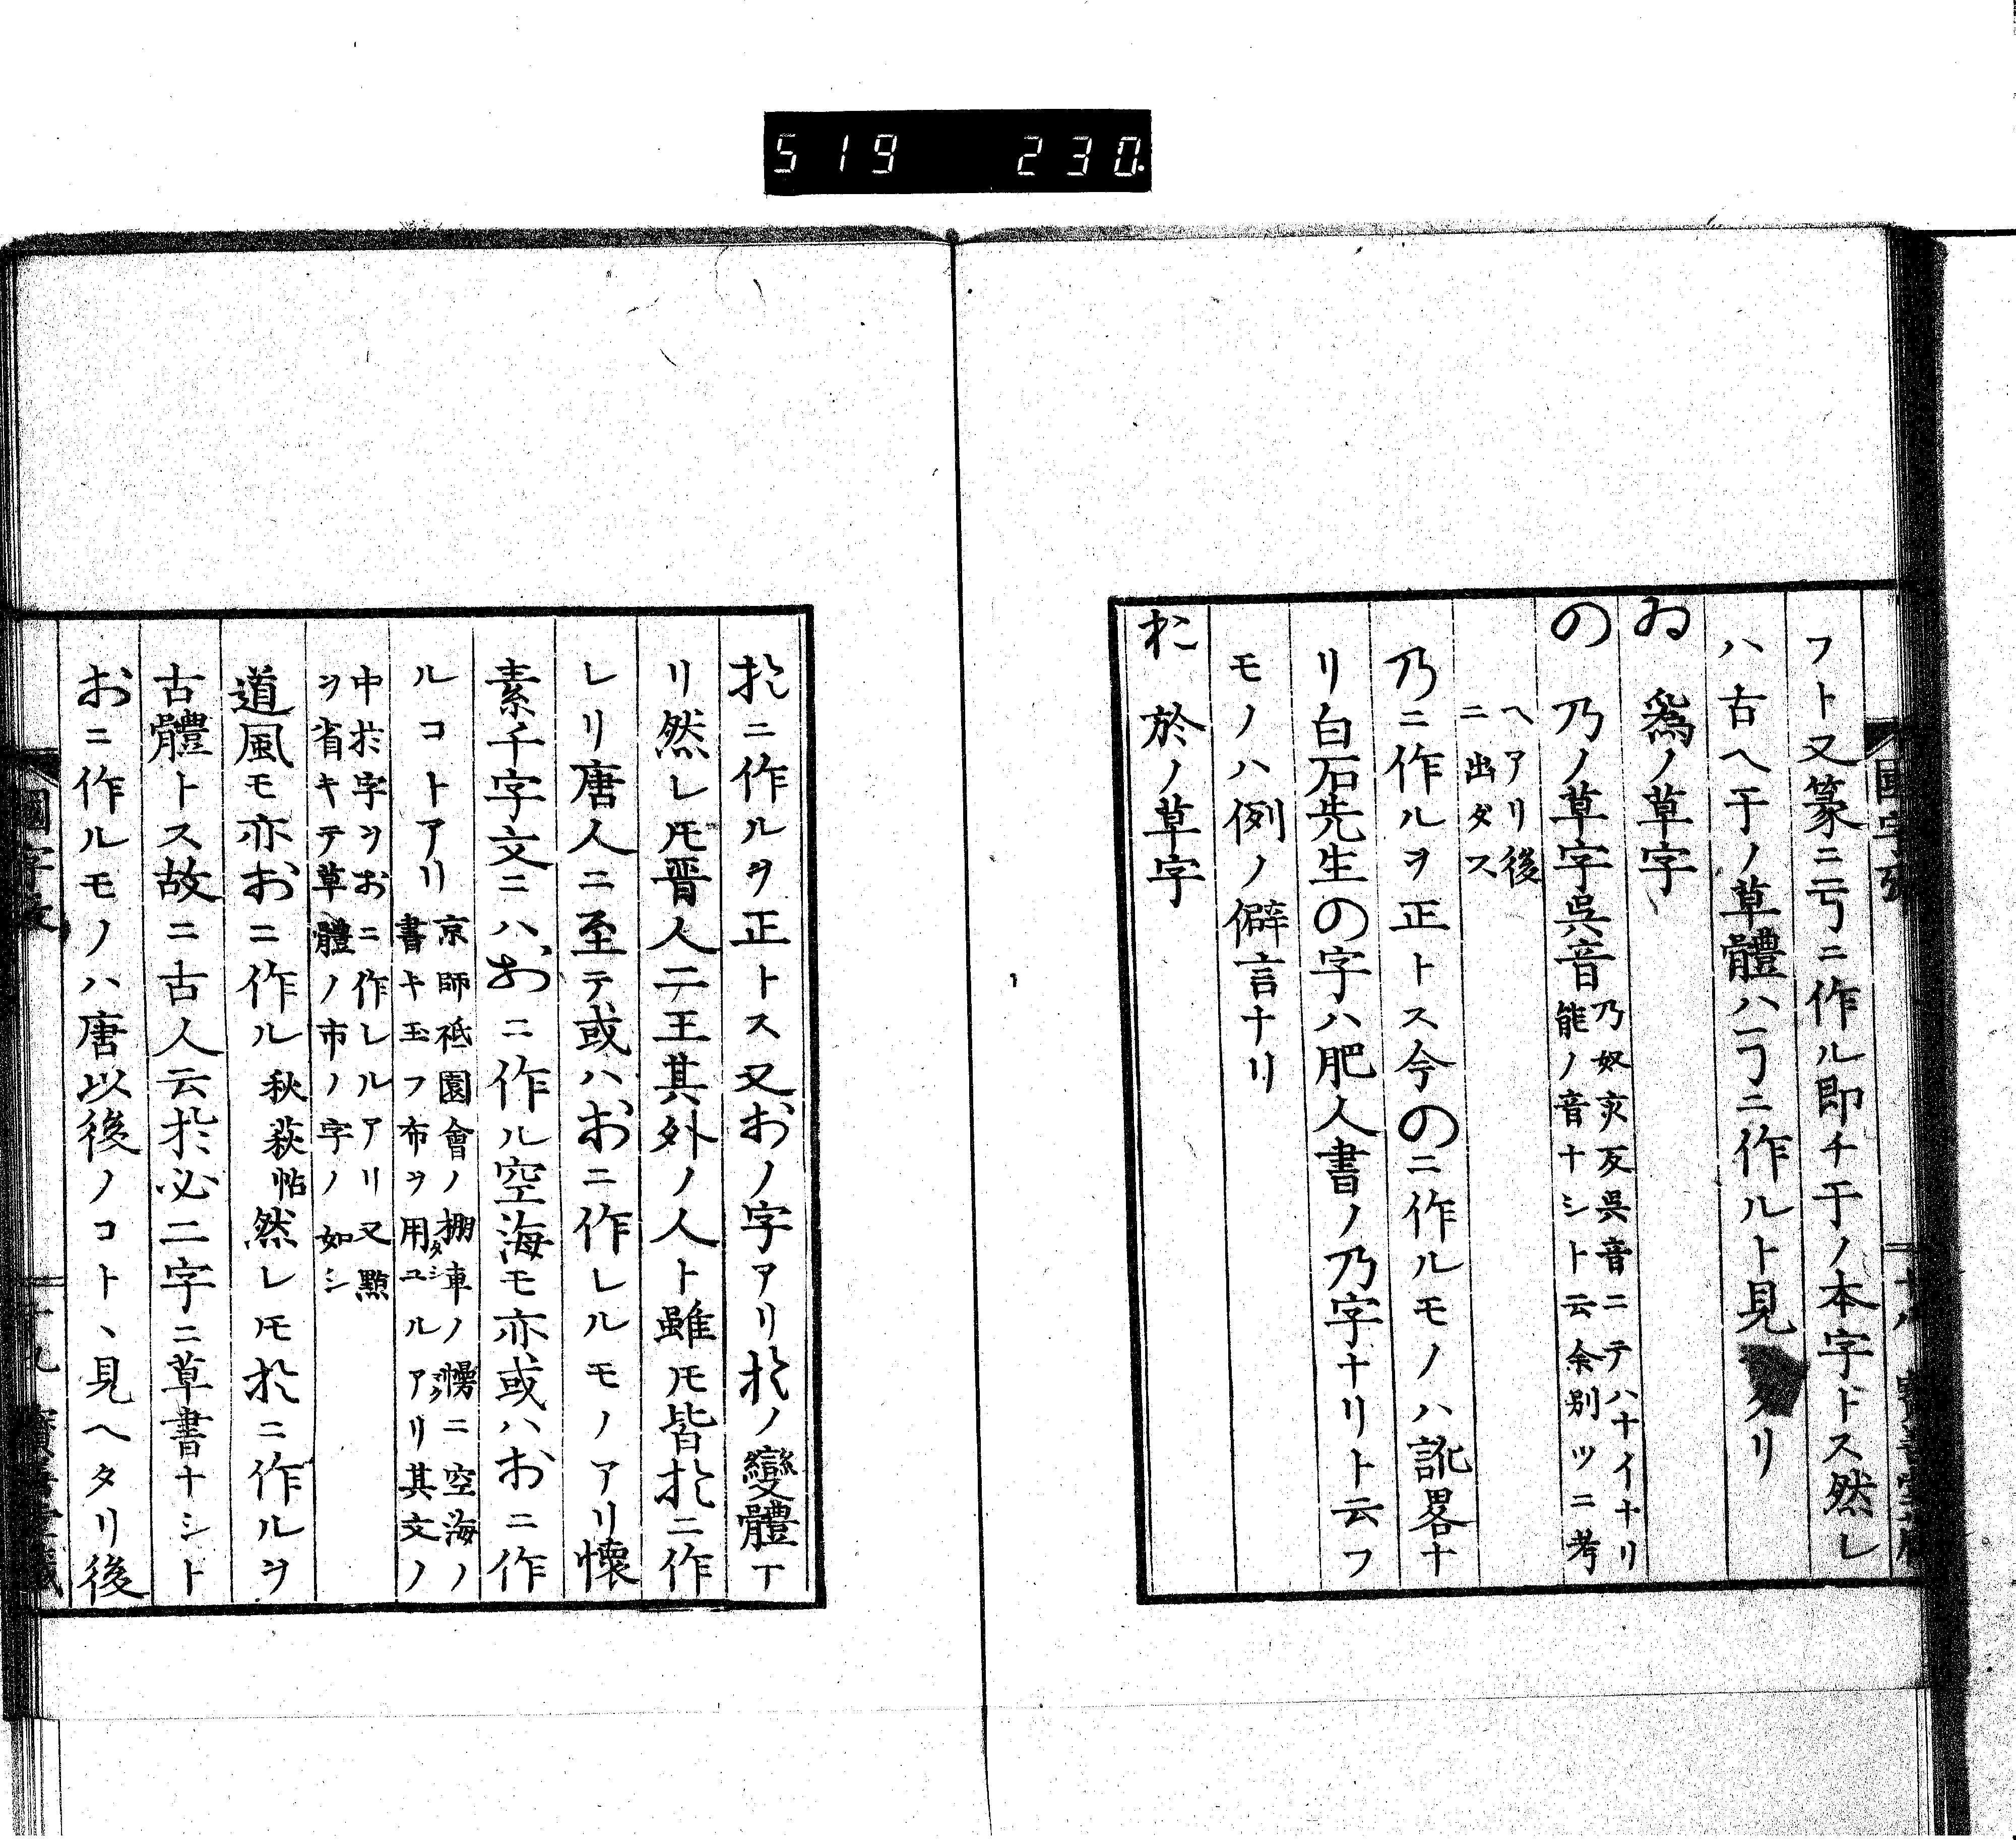 519 230
フト又篆ニ亏ニ作ル即チ于ノ本字トス然レ
ハ古ヘ于ノ草體ハ丂ニ作ルト見タリ
ゐ 爲ノ草字
の 乃ノ草字呉音
乃奴亥反呉音ニテハナイナリ
能ノ音ナシト云余別ツニ考
ヘアリ後
ニ出タス
乃ニ作ルヲ正トス今のニ作ルモノハ訛畧ナ
リ白石先生の字ハ肥人書ノ乃字ナリト云フ
モノハ例ノ僻言ナリ
於ノ草字
ニ作ルヲ正トス又おノ字アリ於ノ變體丅
リ然レ𪜈晋人二王其外ノ人ト雖𪜈皆於ニ作
レリ唐人ニ至テ或ハおニ作レルモノアリ懐
素千字文ニハおニ作ル空海モ亦或ハおニ作
ルコトアリ
京師祇園會ノ棚車ノ幔ニ空海ノ
書キ玉フ布ヲ用ユルアリ其文ノ
中於字ヲおニ作レルアリ又點
ヲ省キテ草體ノ市ノ字ノ如シ
道風モ亦おニ作ル秋萩帖然レ𪜈於ニ作ルヲ
古體トス故ニ古人云於必二字ニ草書ナシト
おニ作ルモノハ唐以後ノコトヽ見ヘタリ後
國字攷
十九